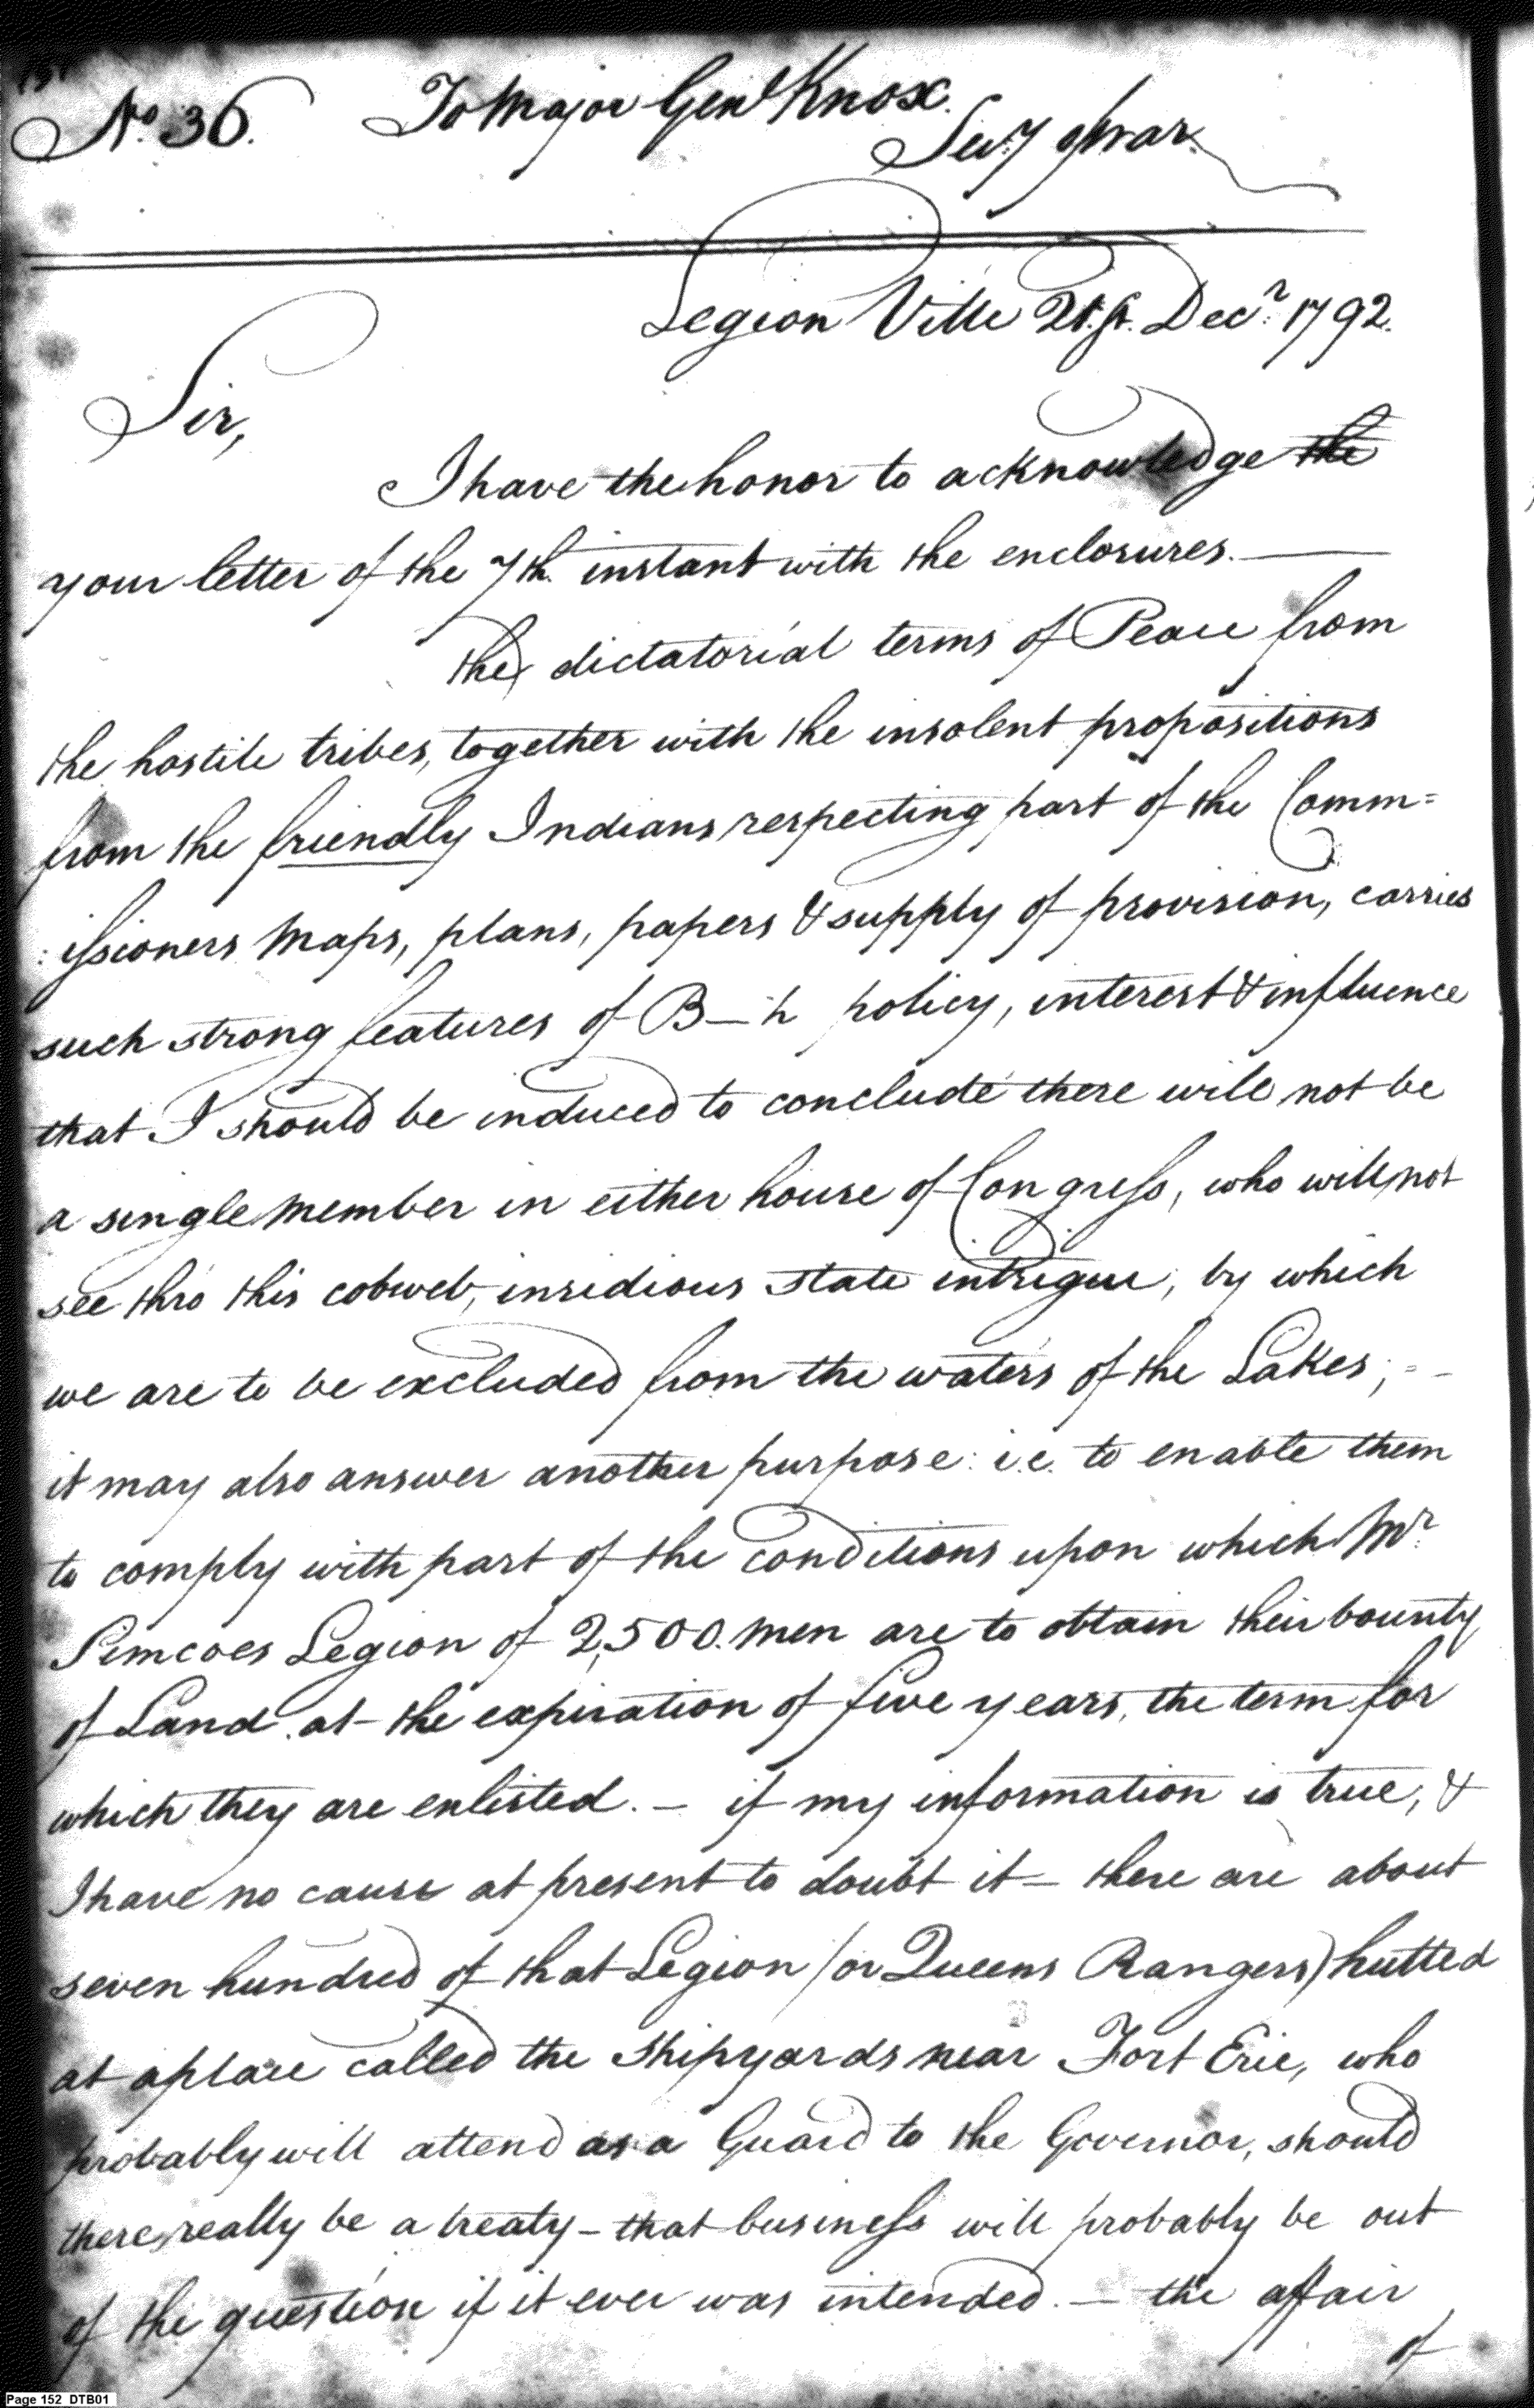 No. 36. To Major Genl Knox.
Secy of War.
Legion Ville 21st. Decr. 1792.
Sir,
I have the honor to acknowledge the
your letter of the 7th. instant with the enclosures. —
the dictatorial terms of Peace from
the hostile tribes, together with the insolent propositions
from the friendly Indians respecting part of the Comm=
:issioners Maps, plans, papers & supply of provision, carries
such strong features of B—h policy, interest & influence
that I should be induced to conclude there will not be
a single Member in either house of Congress, who will not
see thro this cobweb, insidious state intrigue, by which
we are to be excluded from the waters of the Lakes; = -
it may also answer another purpose: i.e. to enable them
to comply with part of the conditions upon which Mr.
Simcoes Legion of 2,500. Men are to obtain their bounty
of Land at the expiration of five years, the term for
which they are enlisted. — if my information is true, &
I have no cause at present to doubt it — there are about
seven hundred of that Legion (or Queens Rangers) hutted
at a place called the Shipyards near Fort Erie, who
probably will attend as a Guard to the Governor, should
there really be a treaty — that business will probably be out
of the question if it ever was intended. — the affair
of
Page 152 DTB01